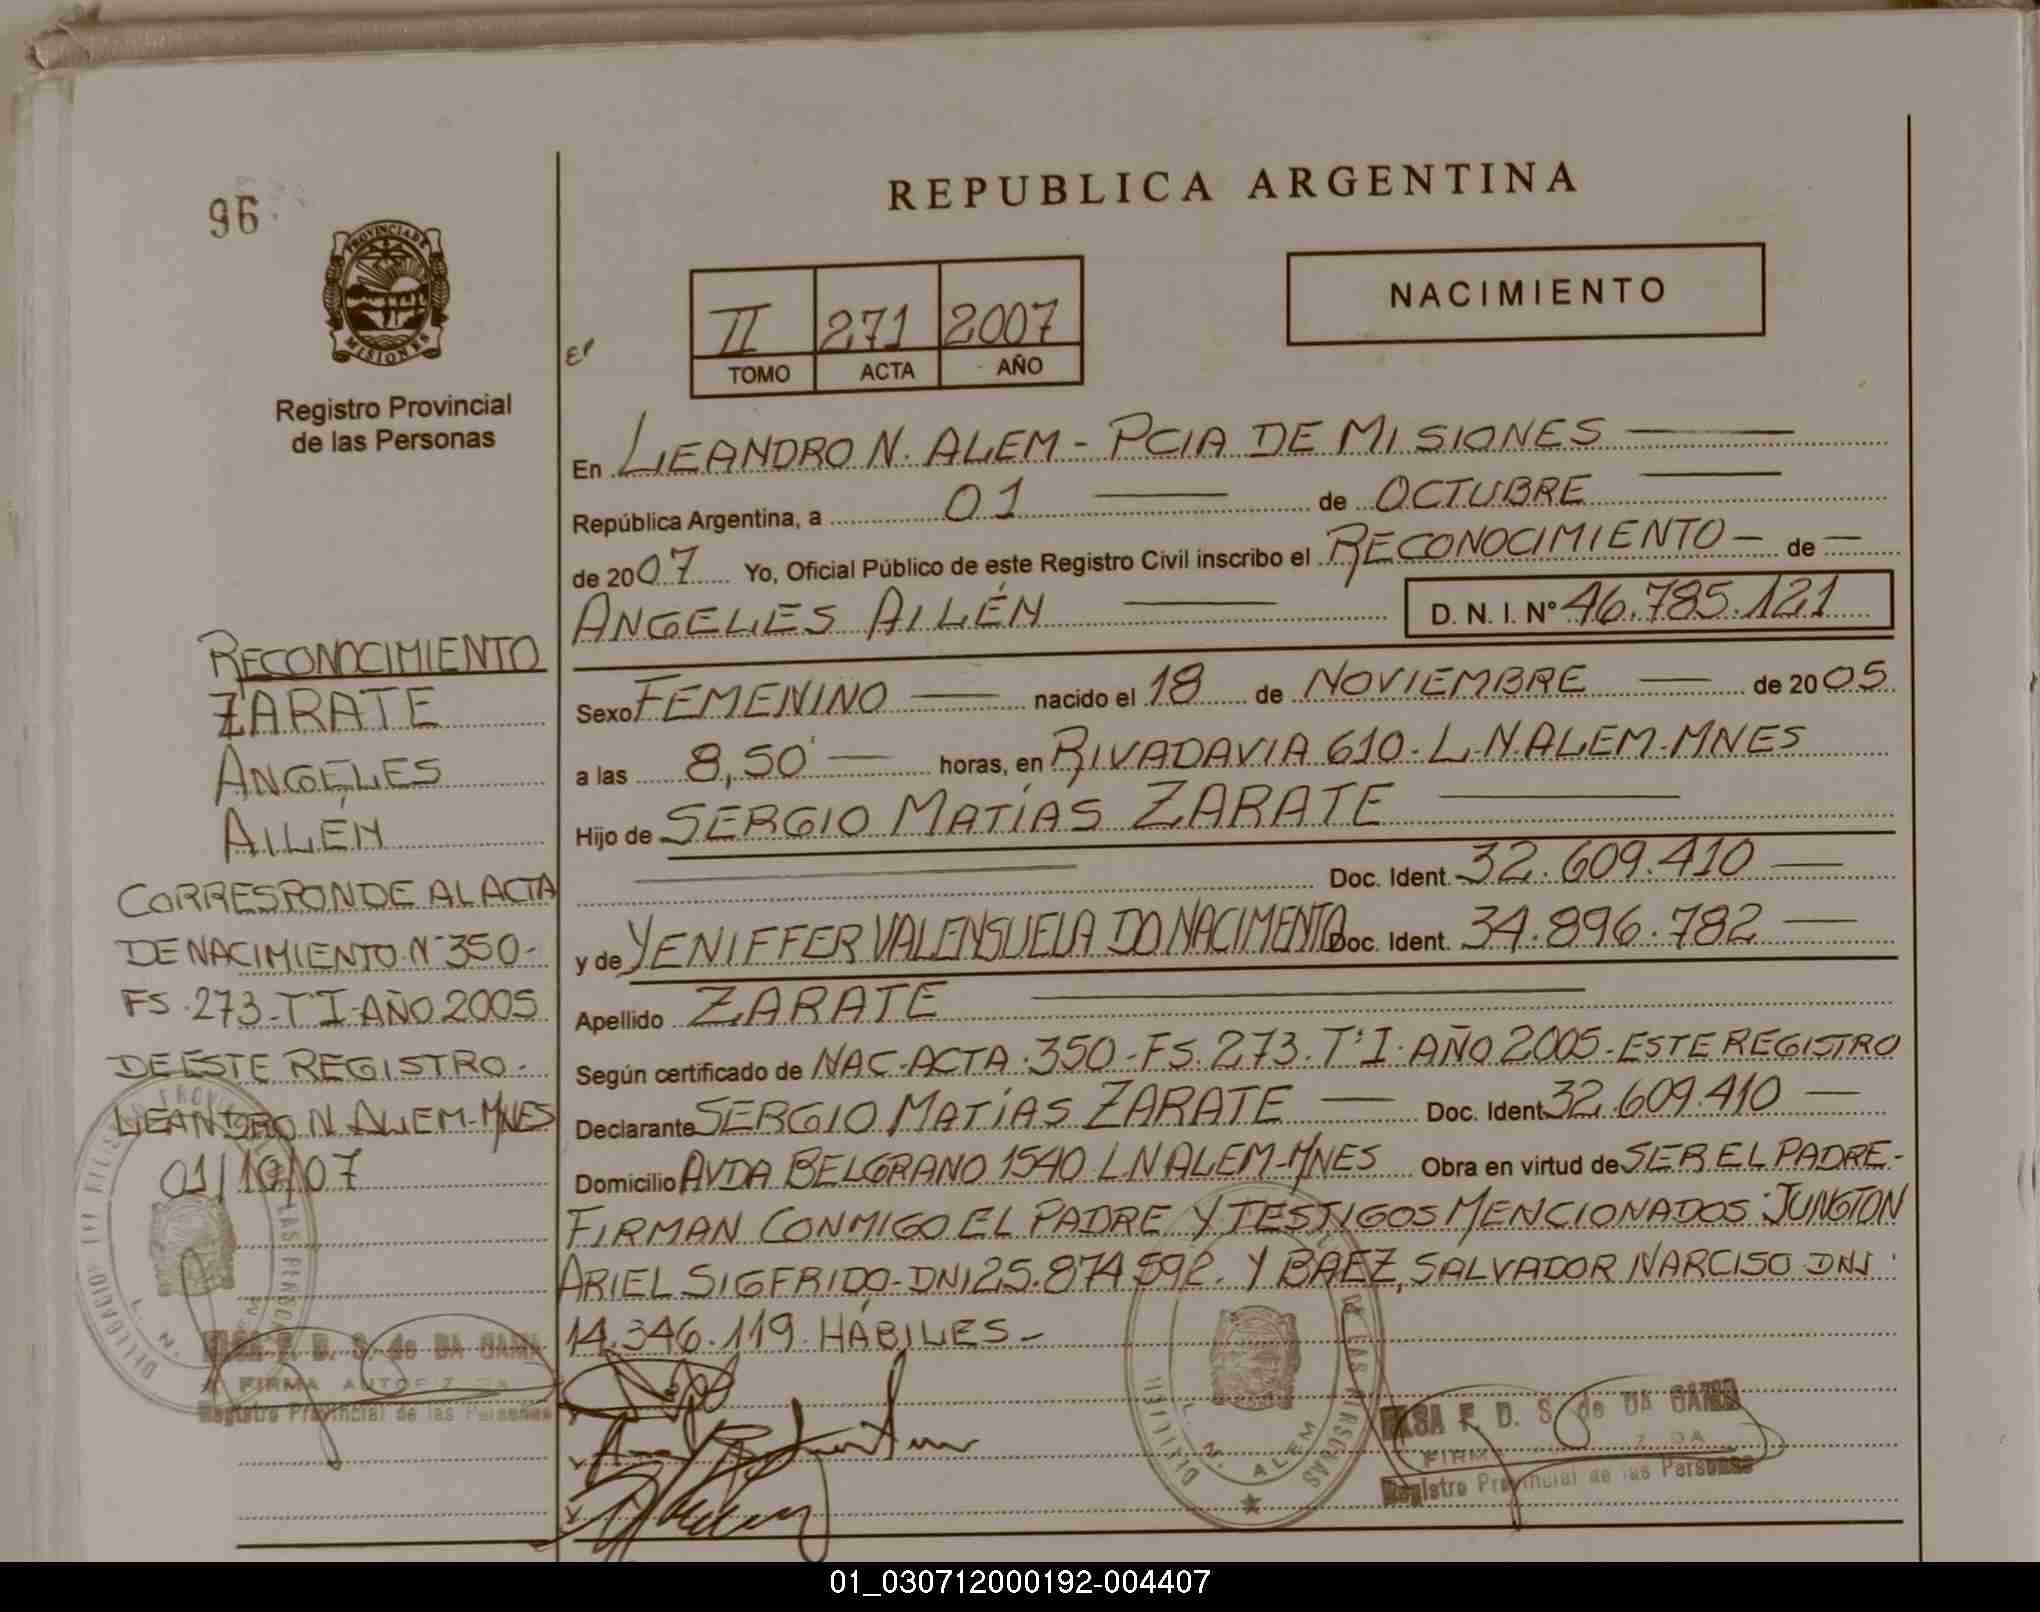 96
REPUBLICA ARGENTINA
PROVINCIA DE
MISIONES
Registro Provincial
de las Personas
II 271 2007
TOMO ACTA AÑO
NACIMIENTO
En LEANDRO N. ALEM - PCIA DE MISIONES
República Argentina, a 01 de OCTUBRE
de 2007 Yo, Oficial Público de este Registro Civil inscribo el RECONOCIMIENTO - de -
ANGELES AILÉN D. N. I. Nº 46.785.121
Sexo FEMENINO nacido el 18 de NOVIEMBRE de 2005
a las 8,50' horas, en RIVADAVIA 610. L.N.ALEM-MNES
Hijo de SERGIO MATÍAS ZARATE
Doc. Ident. 32.609.410
y de YENIFFER VALENSUELA DO NACIMENTO Doc. Ident. 34.896.782
Apellido ZARATE
Según certificado de NAC-ACTA.350-FS.273.TºI.AÑO 2005-ESTE REGISTRO
Declarante SERGIO MATÍAS ZARATE Doc. Ident 32.609.410
Domicilio AVDA BELGRANO 1540 LNALEM-MNES Obra en virtud de SER EL PADRE-
FIRMAN CONMIGO EL PADRE Y TESTIGOS MENCIONADOS: JUNGTON
ARIEL SIGFRIDO-DNI 25.874.592. Y BAEZ, SALVADOR NARCISO DNI
14.346.119 HÁBILES-
RECONOCIMIENTO
ZARATE
ANGELES
AILÉN
CORRESPONDE AL ACTA
DE NACIMIENTO Nº350-
FS.273-TºI-AÑO 2005
DE ESTE REGISTRO-
LEANDRO N ALEM-MNES
01/10/07
F. D. S. de DA GAMA
FIRMA AUTORIZADA
Registro Provincial de las Personas
L. N. ALEM
F. D. S. de DA GAMA
Registro Provincial de las Personas
01_030712000192-004407